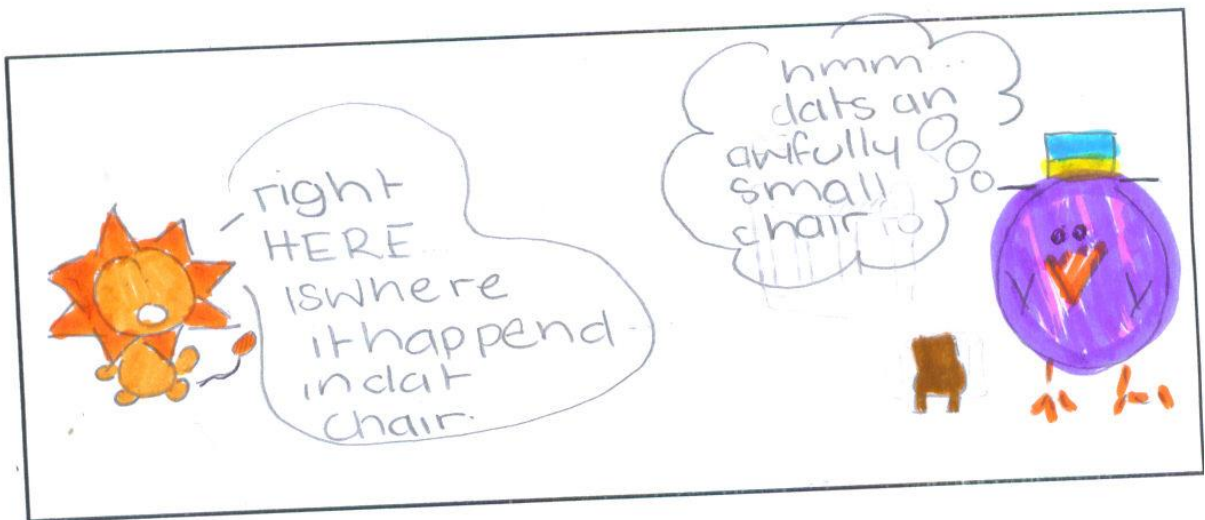 right
HERE...
iswhere
ithappend
indat
chair.
hmm...
dats an
awfully
small
chair